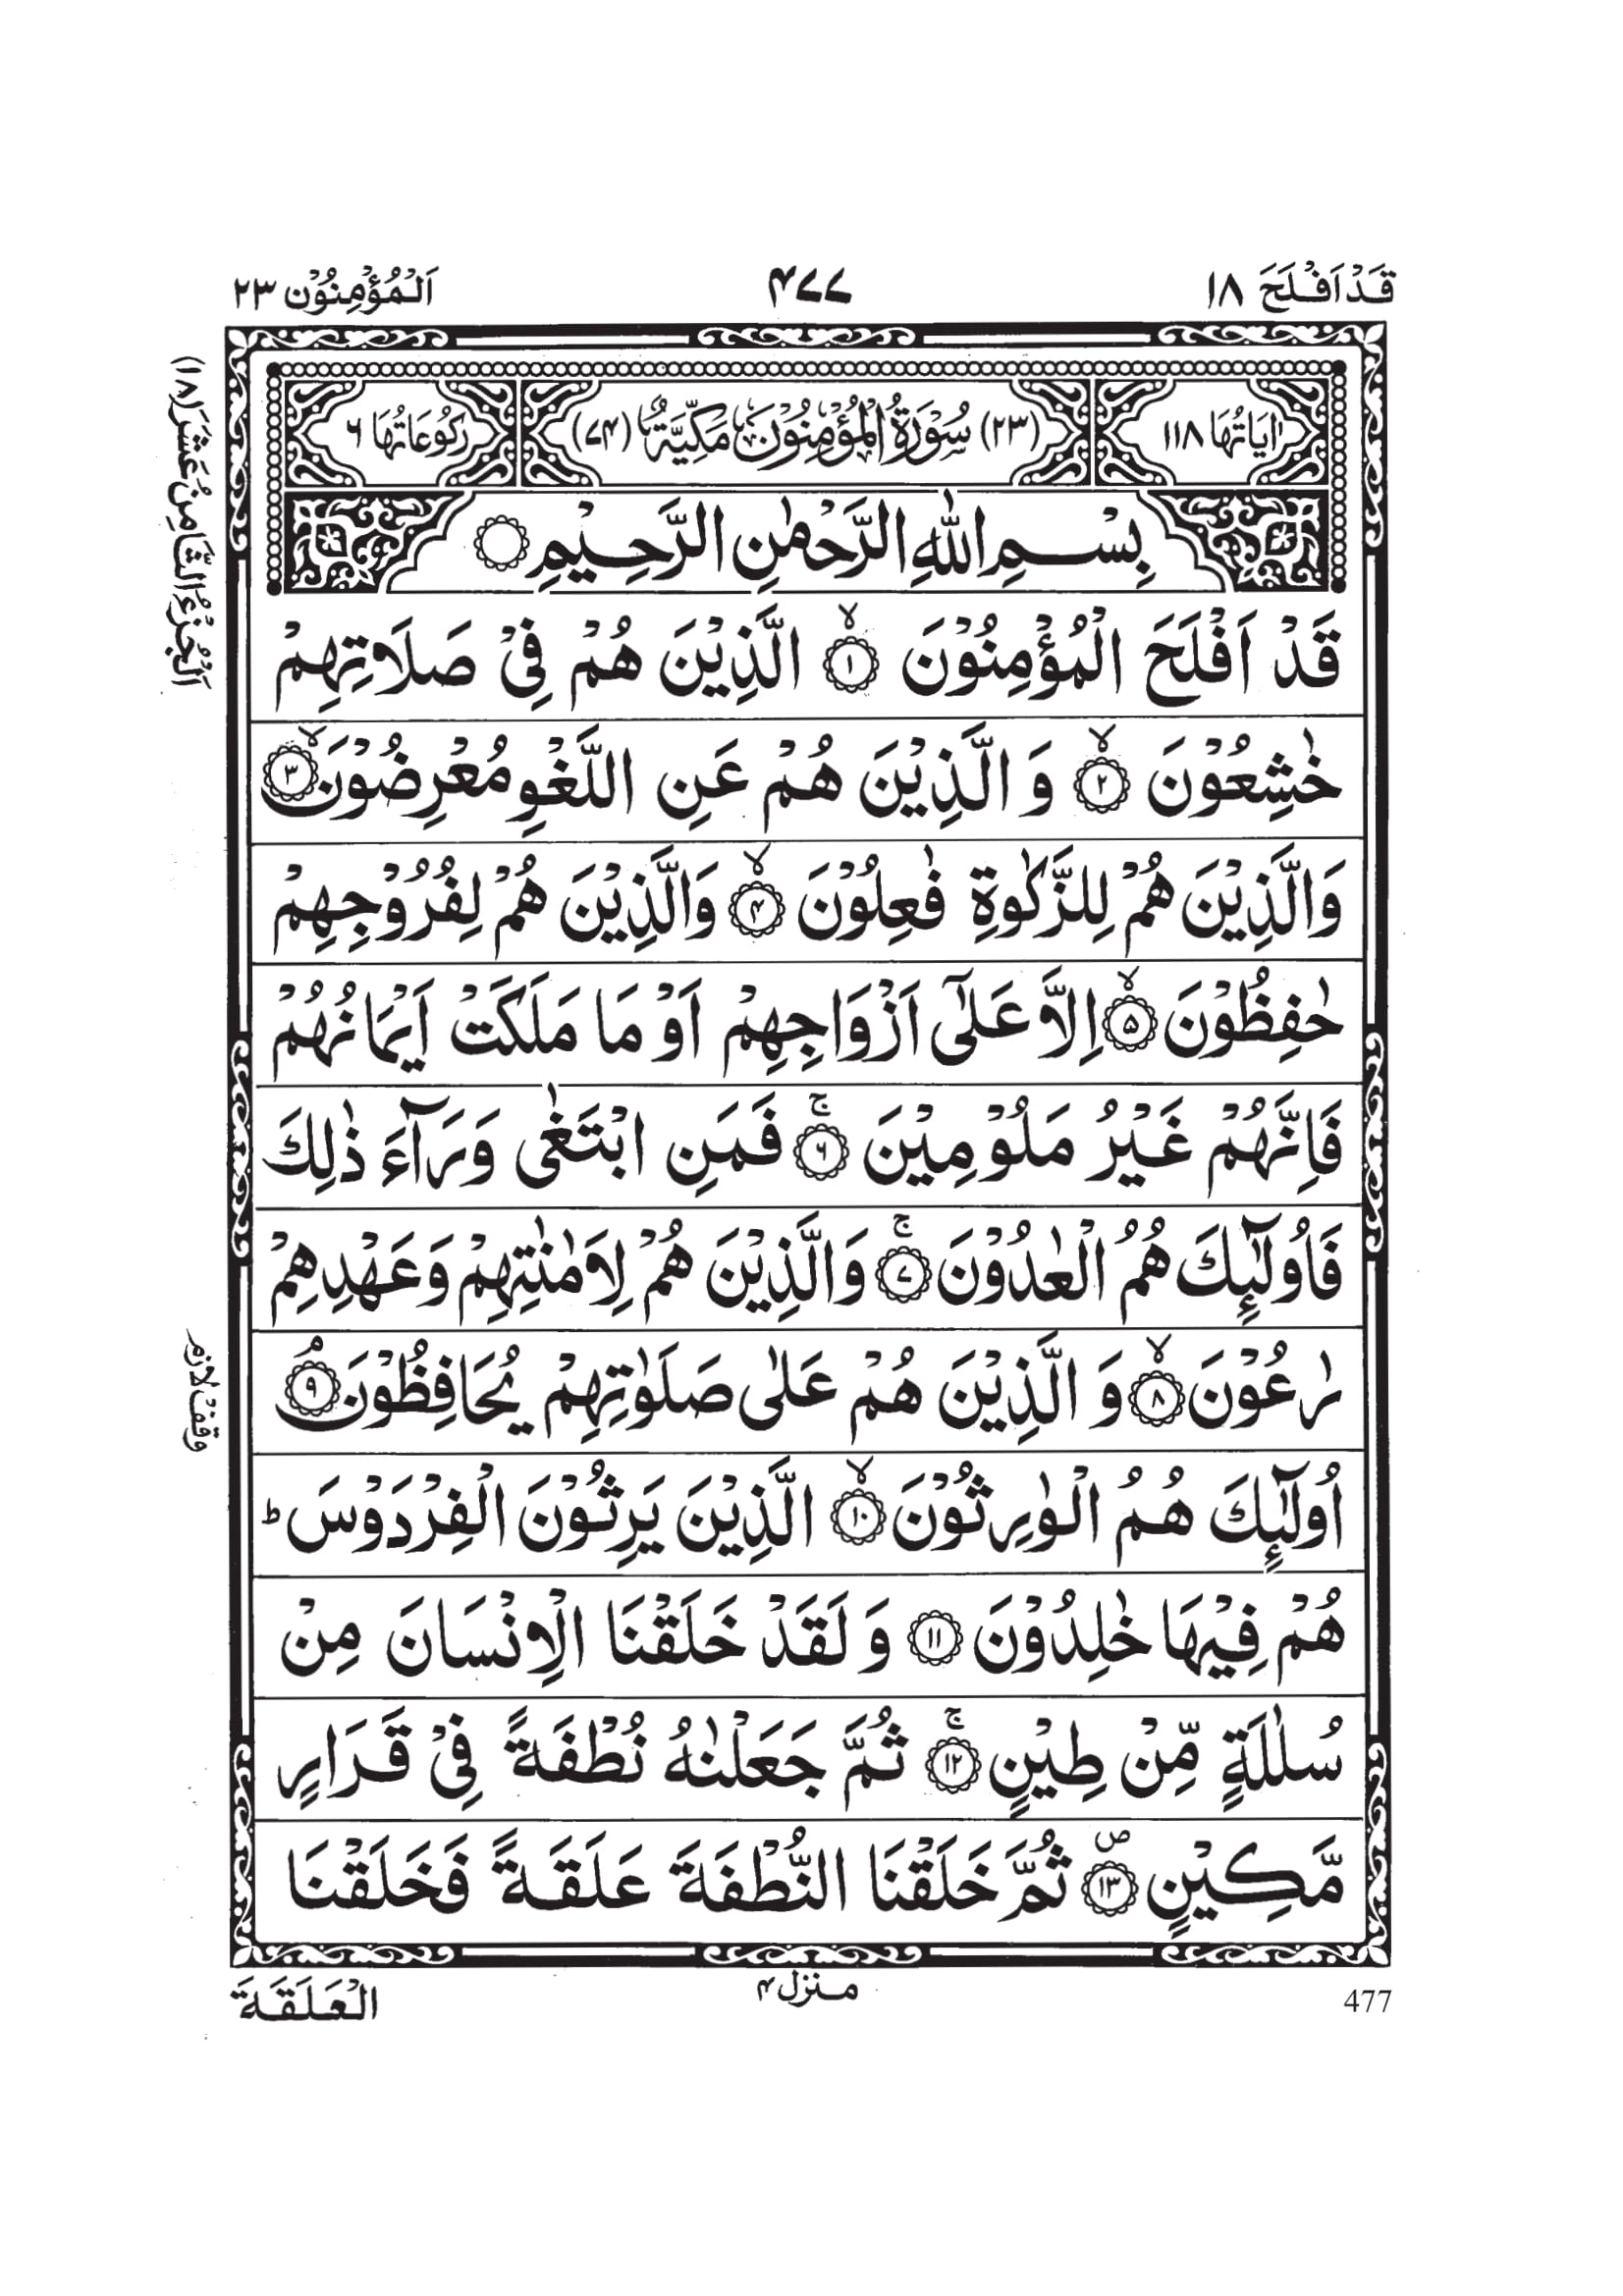 قَدْ اَفْلَحَ ١٨
٤٧٧
اَلْمُؤْمِنُوْن ٢٣
اٰيَاتُهَا ١١٨
(٢٣) سُوْرَةُ الْمُؤْمِنُوْنَ مَكِّيَّةٌ (٧٤)
رُكُوْعَاتُهَا ٦
بِسْمِ اللّٰهِ الرَّحْمٰنِ الرَّحِيْمِ ۝
قَدْ اَفْلَحَ الْمُؤْمِنُوْنَ ۙ﴿١﴾ الَّذِيْنَ هُمْ فِيْ صَلَاتِهِمْ
خٰشِعُوْنَ ۙ﴿٢﴾ وَ الَّذِيْنَ هُمْ عَنِ اللَّغْوِ مُعْرِضُوْنَ ۙ﴿٣﴾
وَالَّذِيْنَ هُمْ لِلزَّكٰوةِ فٰعِلُوْنَ ۙ﴿٤﴾ وَالَّذِيْنَ هُمْ لِفُرُوْجِهِمْ
حٰفِظُوْنَ ۙ﴿٥﴾ اِلَّا عَلٰٓى اَزْوَاجِهِمْ اَوْ مَا مَلَكَتْ اَيْمَانُهُمْ
فَاِنَّهُمْ غَيْرُ مَلُوْمِيْنَ ۚ﴿٦﴾ فَمَنِ ابْتَغٰى وَرَآءَ ذٰلِكَ
فَاُولٰٓئِكَ هُمُ الْعٰدُوْنَ ۚ﴿٧﴾ وَالَّذِيْنَ هُمْ لِاَمٰنٰتِهِمْ وَعَهْدِهِمْ
رٰعُوْنَ ۙ﴿٨﴾ وَ الَّذِيْنَ هُمْ عَلٰى صَلَوٰتِهِمْ يُحَافِظُوْنَ ۘ﴿٩﴾
اُولٰٓئِكَ هُمُ الْوٰرِثُوْنَ ۙ﴿١٠﴾ الَّذِيْنَ يَرِثُوْنَ الْفِرْدَوْسَ ؕ
هُمْ فِيْهَا خٰلِدُوْنَ ﴿١١﴾ وَ لَقَدْ خَلَقْنَا الْاِنْسَانَ مِنْ
سُلٰلَةٍ مِّنْ طِيْنٍ ۚ﴿١٢﴾ ثُمَّ جَعَلْنٰهُ نُطْفَةً فِيْ قَرَارٍ
مَّكِيْنٍ ۪﴿١٣﴾ ثُمَّ خَلَقْنَا النُّطْفَةَ عَلَقَةً فَخَلَقْنَا
اَلْجُزْءُ الثَّامِنُ عَشَرَ (١٨)
وقف لازم
477
منزل ٤
الْعَلَقَةَ